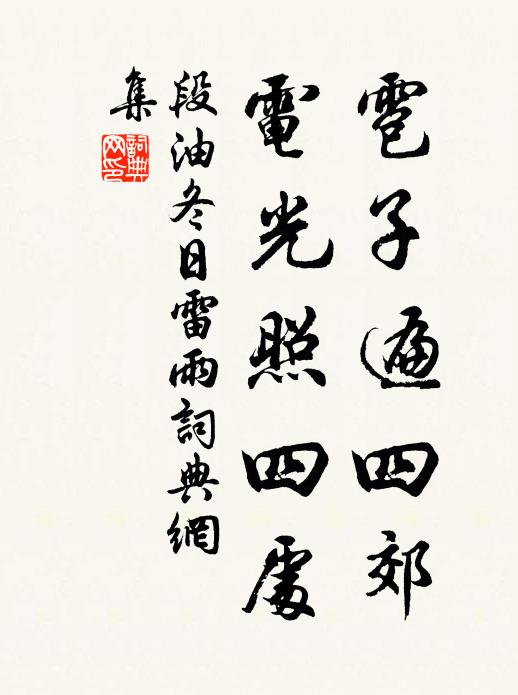 雹子遍四郊
電光照四處
段油冬日雷雨詞典網
集
詞典
网印